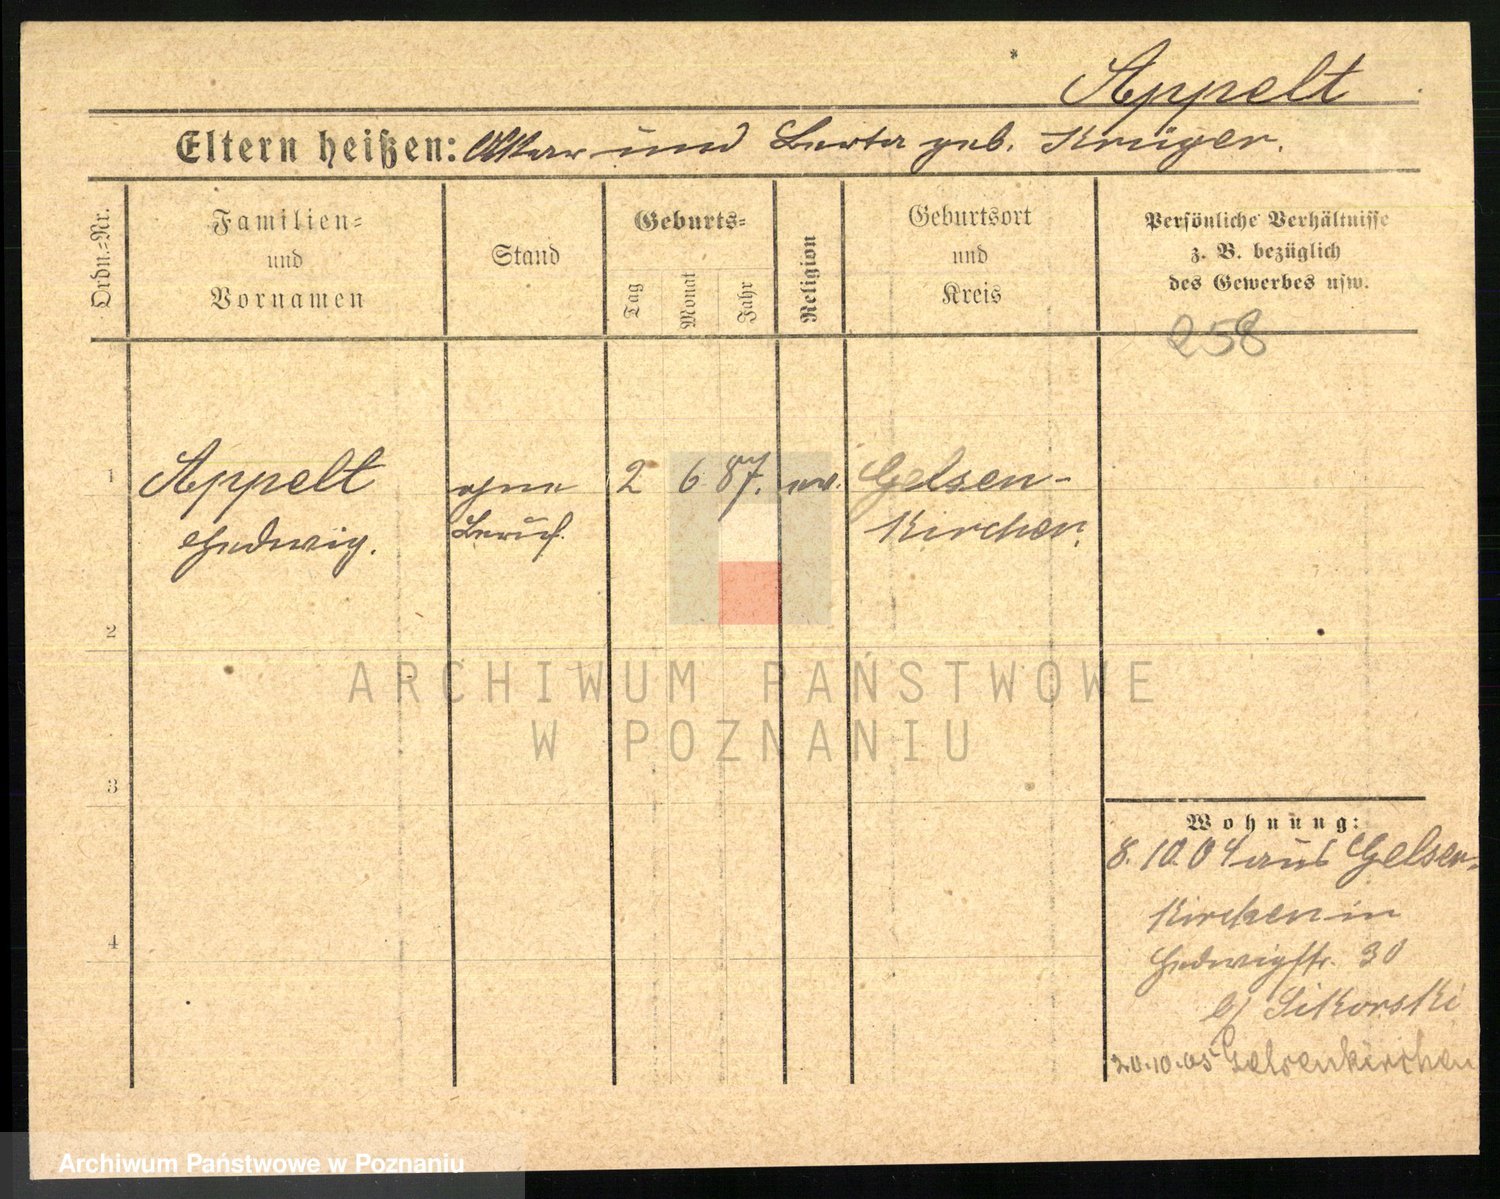 Appelt
Eltern heißen: Oskar und Berta geb. Krüger.
Ordn.-Nr.
Familien-
und
Vornamen
Stand
Geburts-
Tag
Monat
Jahr
Religion
Geburtsort
und
Kreis
Persönliche Verhältnisse
z. B. bezüglich
des Gewerbes usw.
258
1 Appelt ohne 2 6 87. ev. Gelsen-
Hedwig. Beruf. Kirchen.
2
ARCHIWUM PAŃSTWOWE
W POZNANIU
3
Wohnung:
8. 10. 04 aus Gelsen-
Kirchen in
4
Hedwigstr. 30
b/ Sikorski
20.10.05 Gelsenkirchen
Archiwum Państwowe w Poznaniu